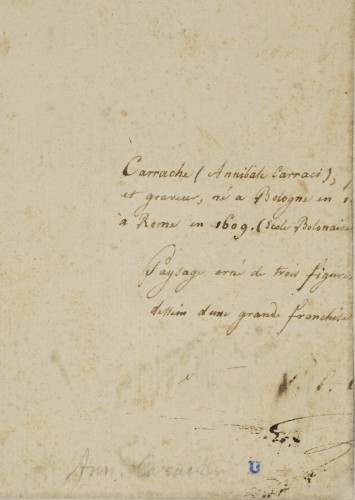 Carrache (Annibale Carraci),
et graveur, né a Bologne en
à Rome en 1609. (Ecole Bolonaise
Paysage orné de trois figures
dessin d'une grande franchise
Ann. Caracche